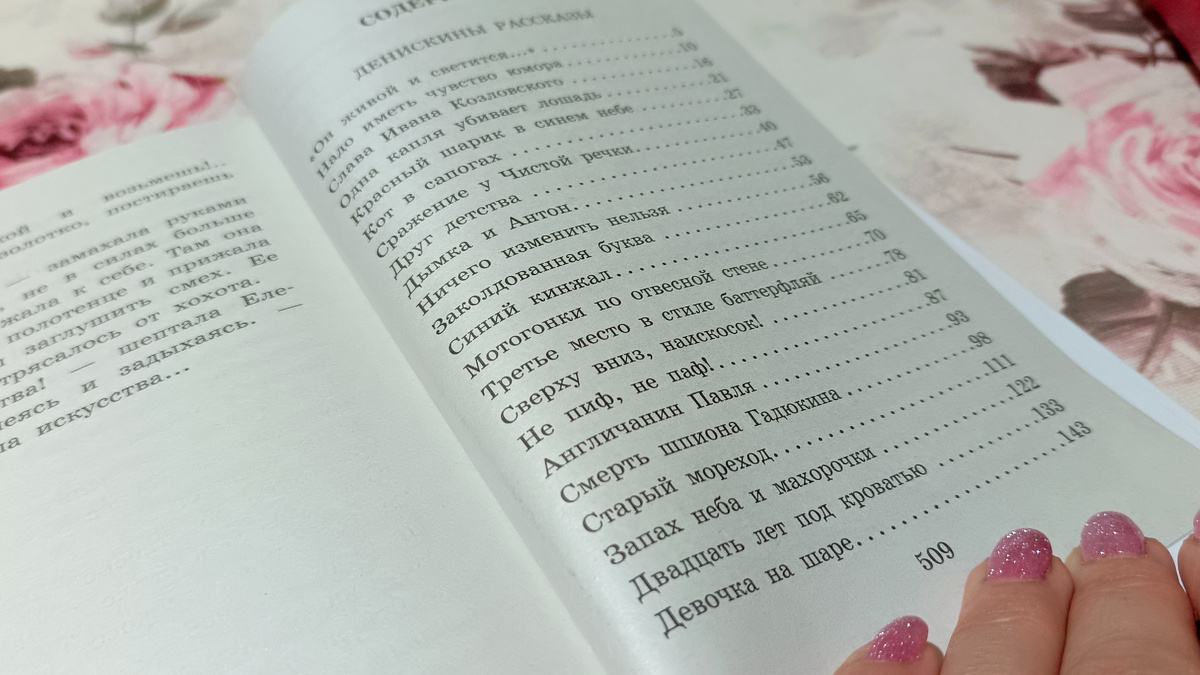 кой и возьмешь!..
олотко, постираешь
— замахала руками
не в силах больше
жала к себе. Там она
полотенце и прижала
заглушить смех. Ее
трясалось от хохота.
тва! — шептала Еле-
еясь и задыхаясь. —
на искусства...
СОДЕР
ДЕНИСКИНЫ РАССКАЗЫ
«Он живой и светится...» 5
Надо иметь чувство юмора 10
Слава Ивана Козловского 16
Одна капля убивает лошадь 21
Красный шарик в синем небе 27
Кот в сапогах 33
Сражение у Чистой речки 40
Друг детства 47
Дымка и Антон 53
Ничего изменить нельзя 56
Заколдованная буква 62
Синий кинжал 65
Мотогонки по отвесной стене 70
Третье место в стиле баттерфляй 78
Сверху вниз, наискосок! 81
Не пиф, не паф! 87
Англичанин Павля 93
Смерть шпиона Гадюкина 98
Старый мореход 111
Запах неба и махорочки 122
Двадцать лет под кроватью 133
Девочка на шаре 143
509